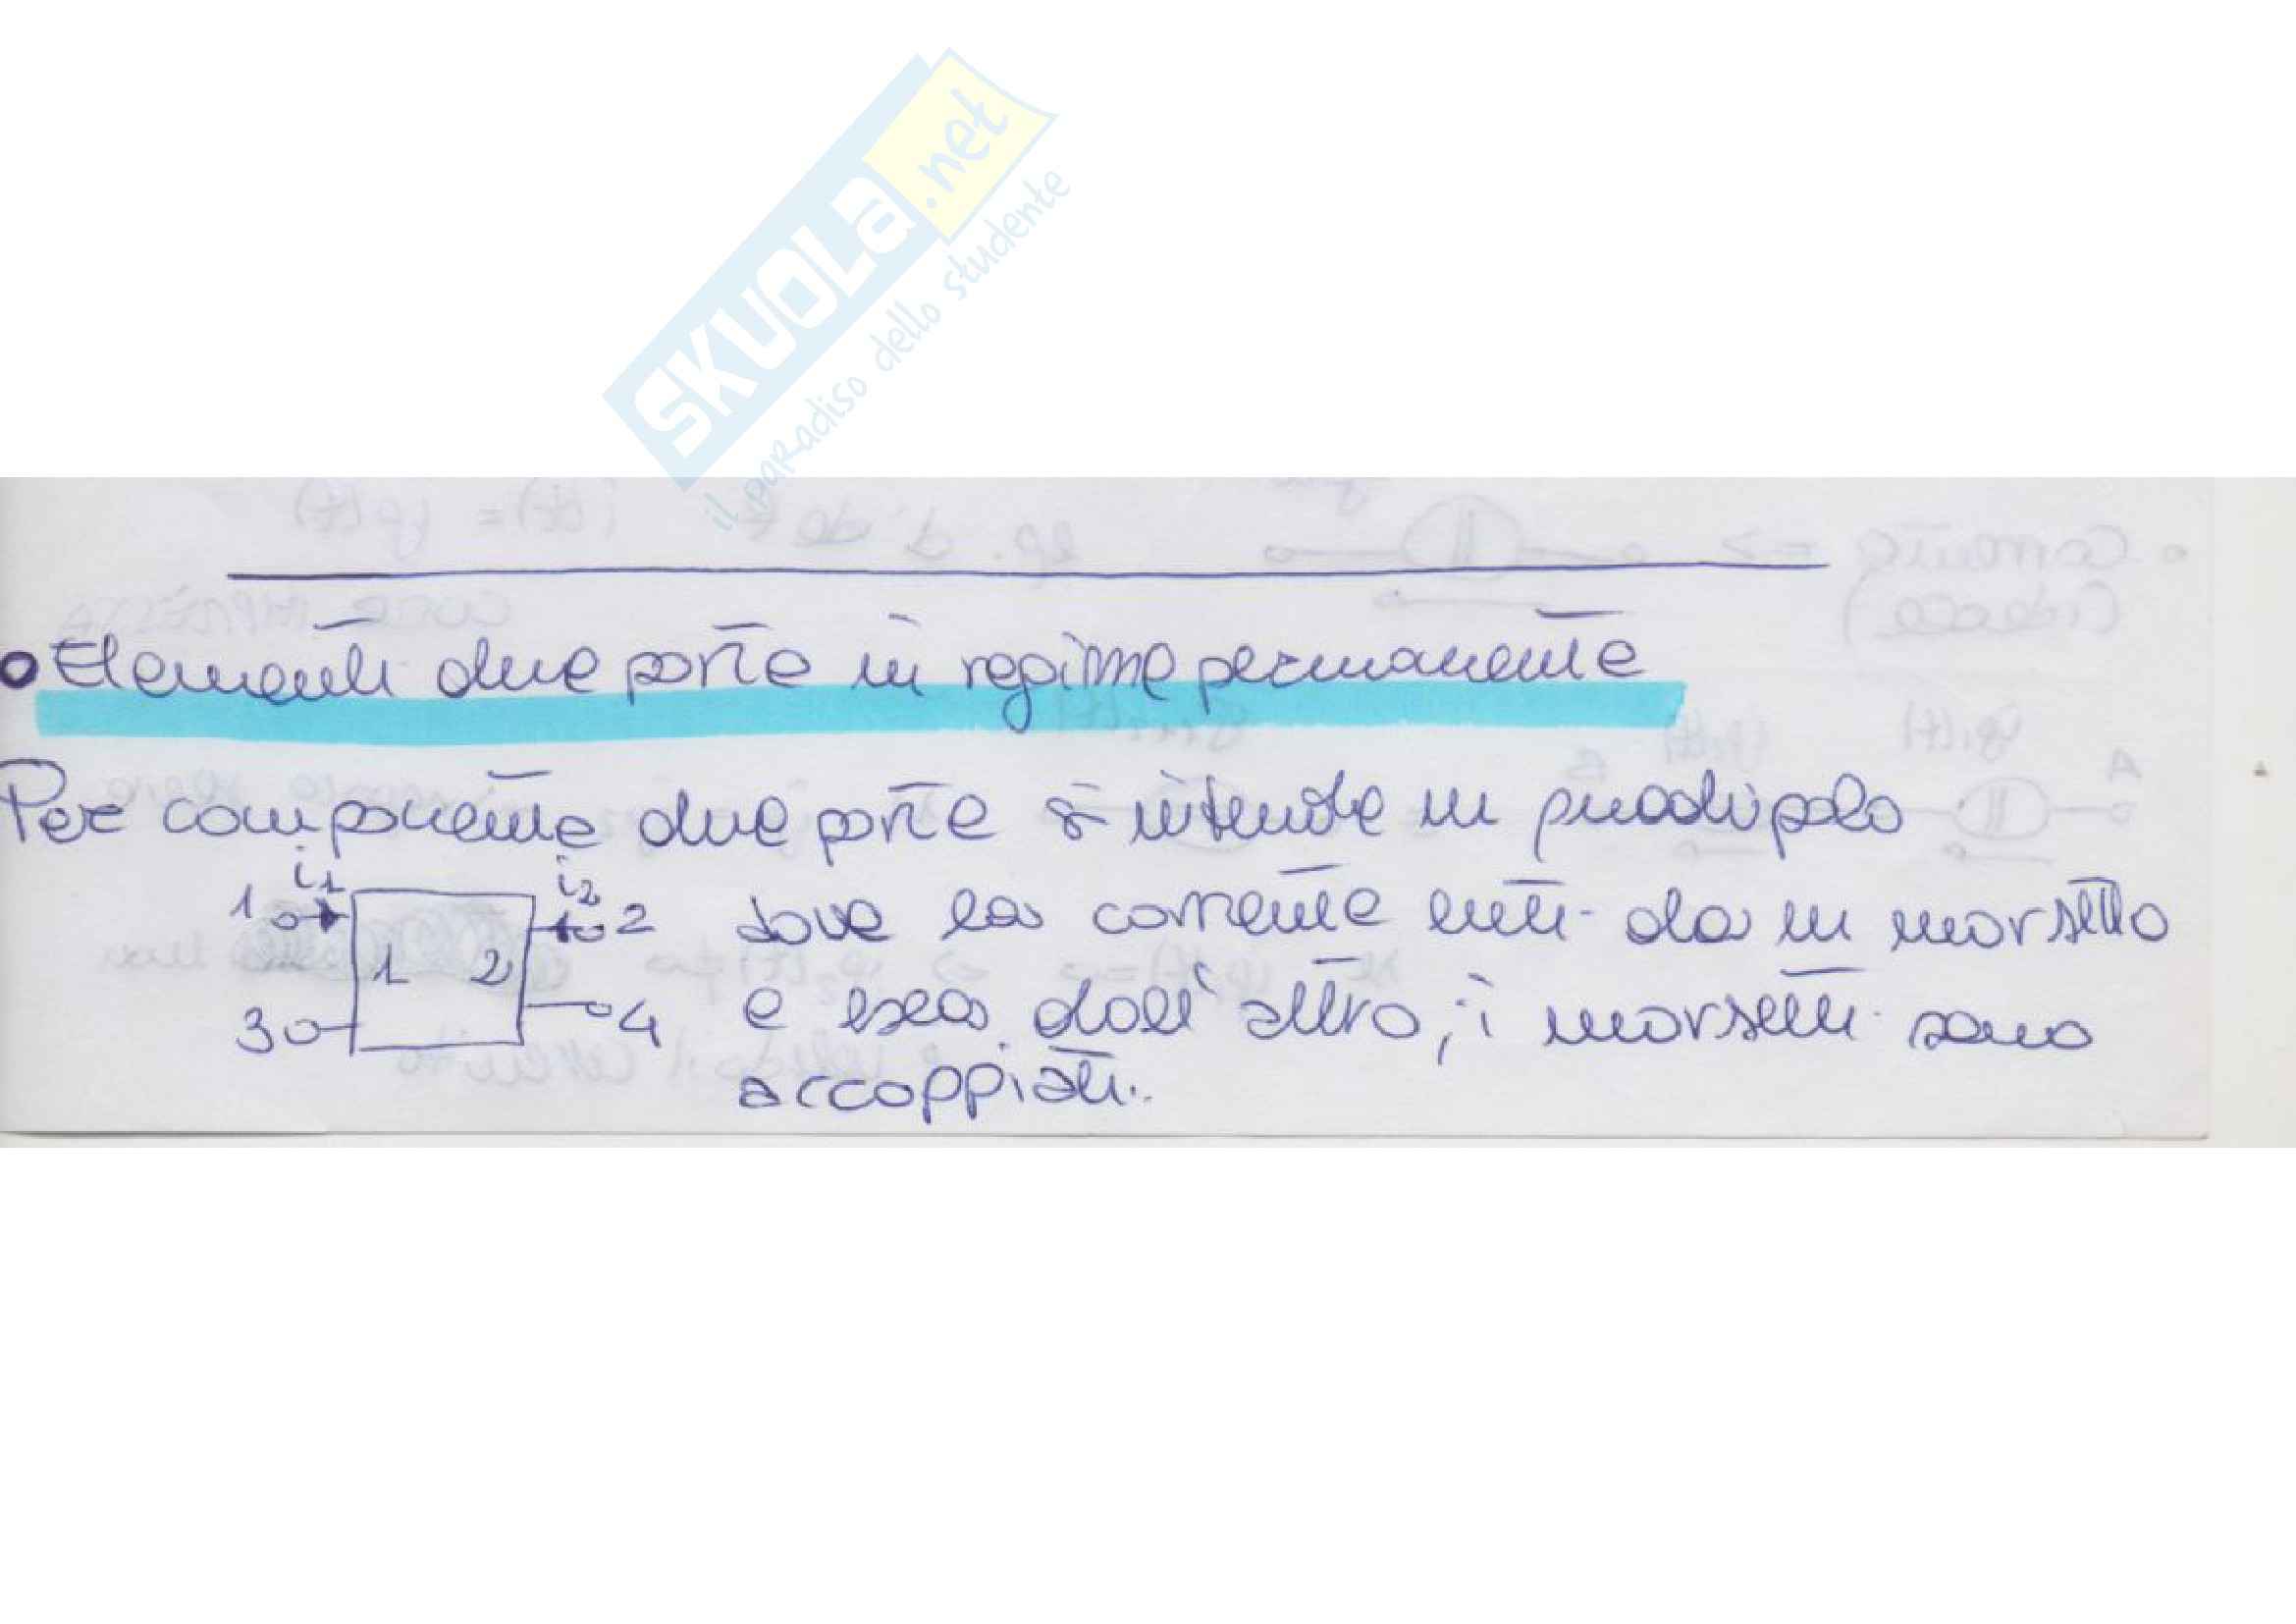 SKUOLA.net
il paradiso dello studente
Elementi due porte in regime permanente
Per componente due porte si intende un quadripolo
i1 i2
1 2 dove la corrente entri da un morsetto
1 2
3 4 e esca dall'altro, i morsetti sono
accoppiati.